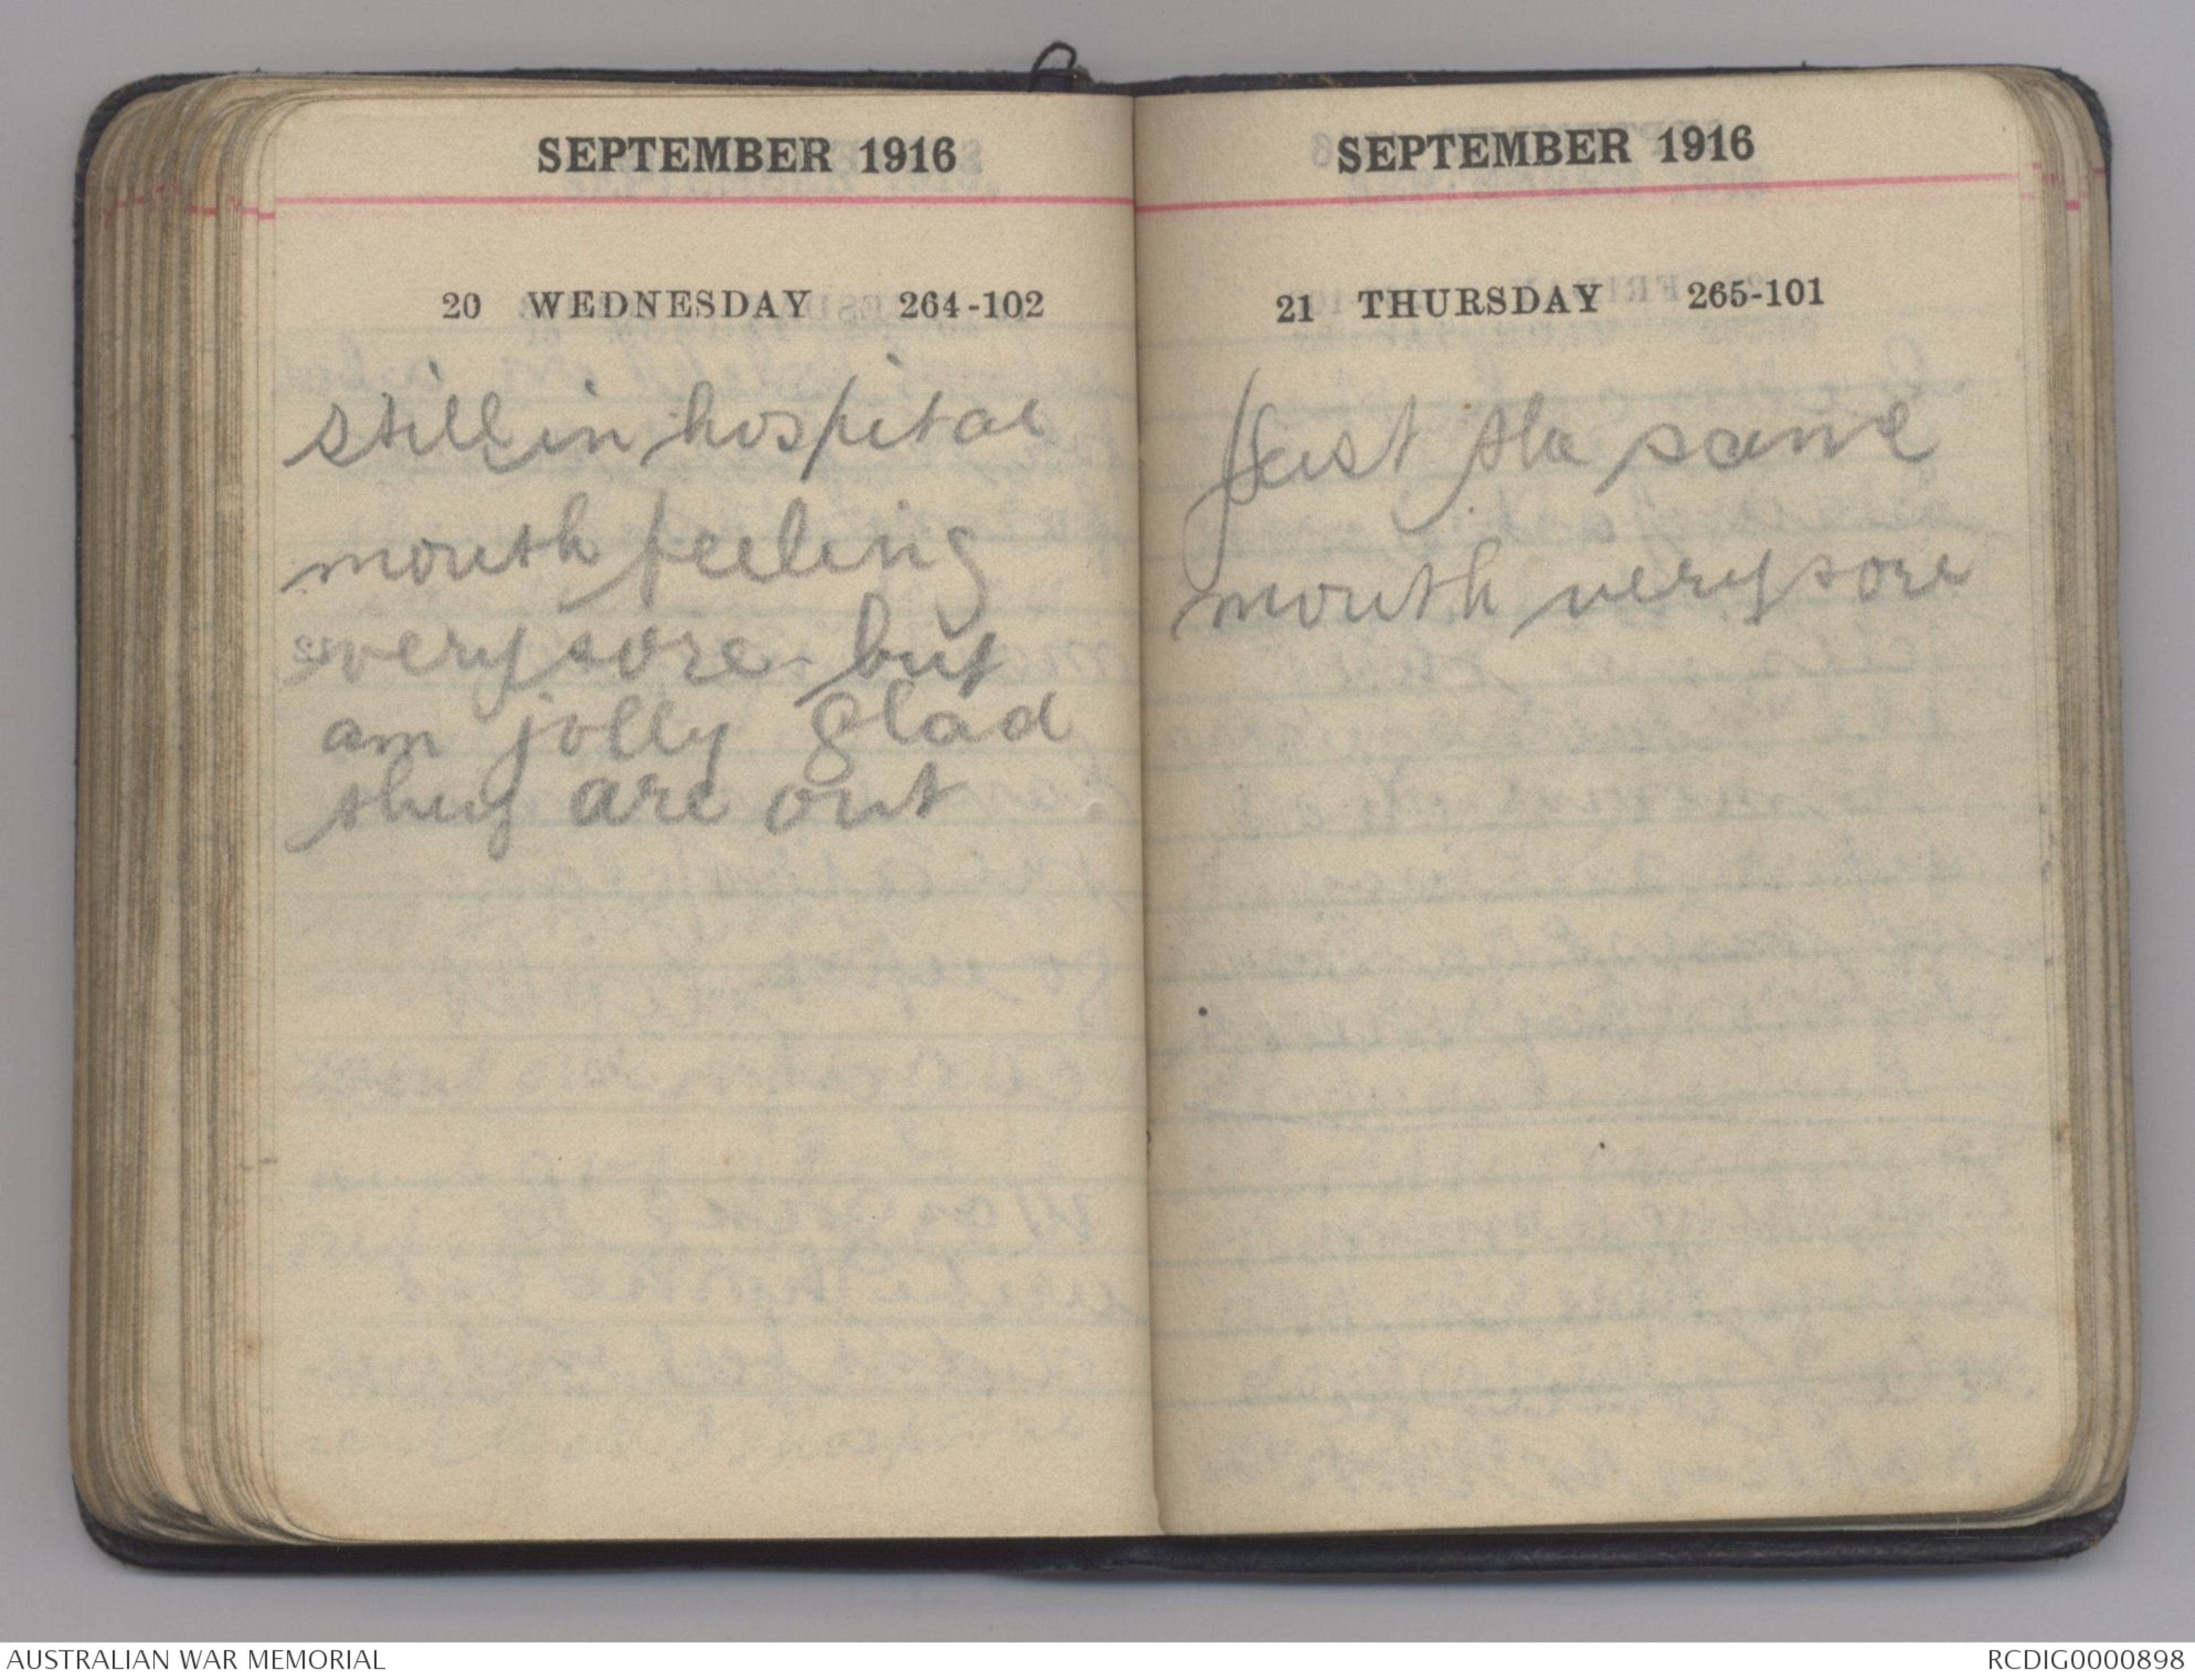 SEPTEMBER 1916
20 WEDNESDAY 264-102
still in hospital
mouth feeling
very sore but
am jolly glad
they are out
SEPTEMBER 1916
21 THURSDAY 265-101
Just the same
mouth very sore
AUSTRALIAN WAR MEMORIAL
RCDIG0000898